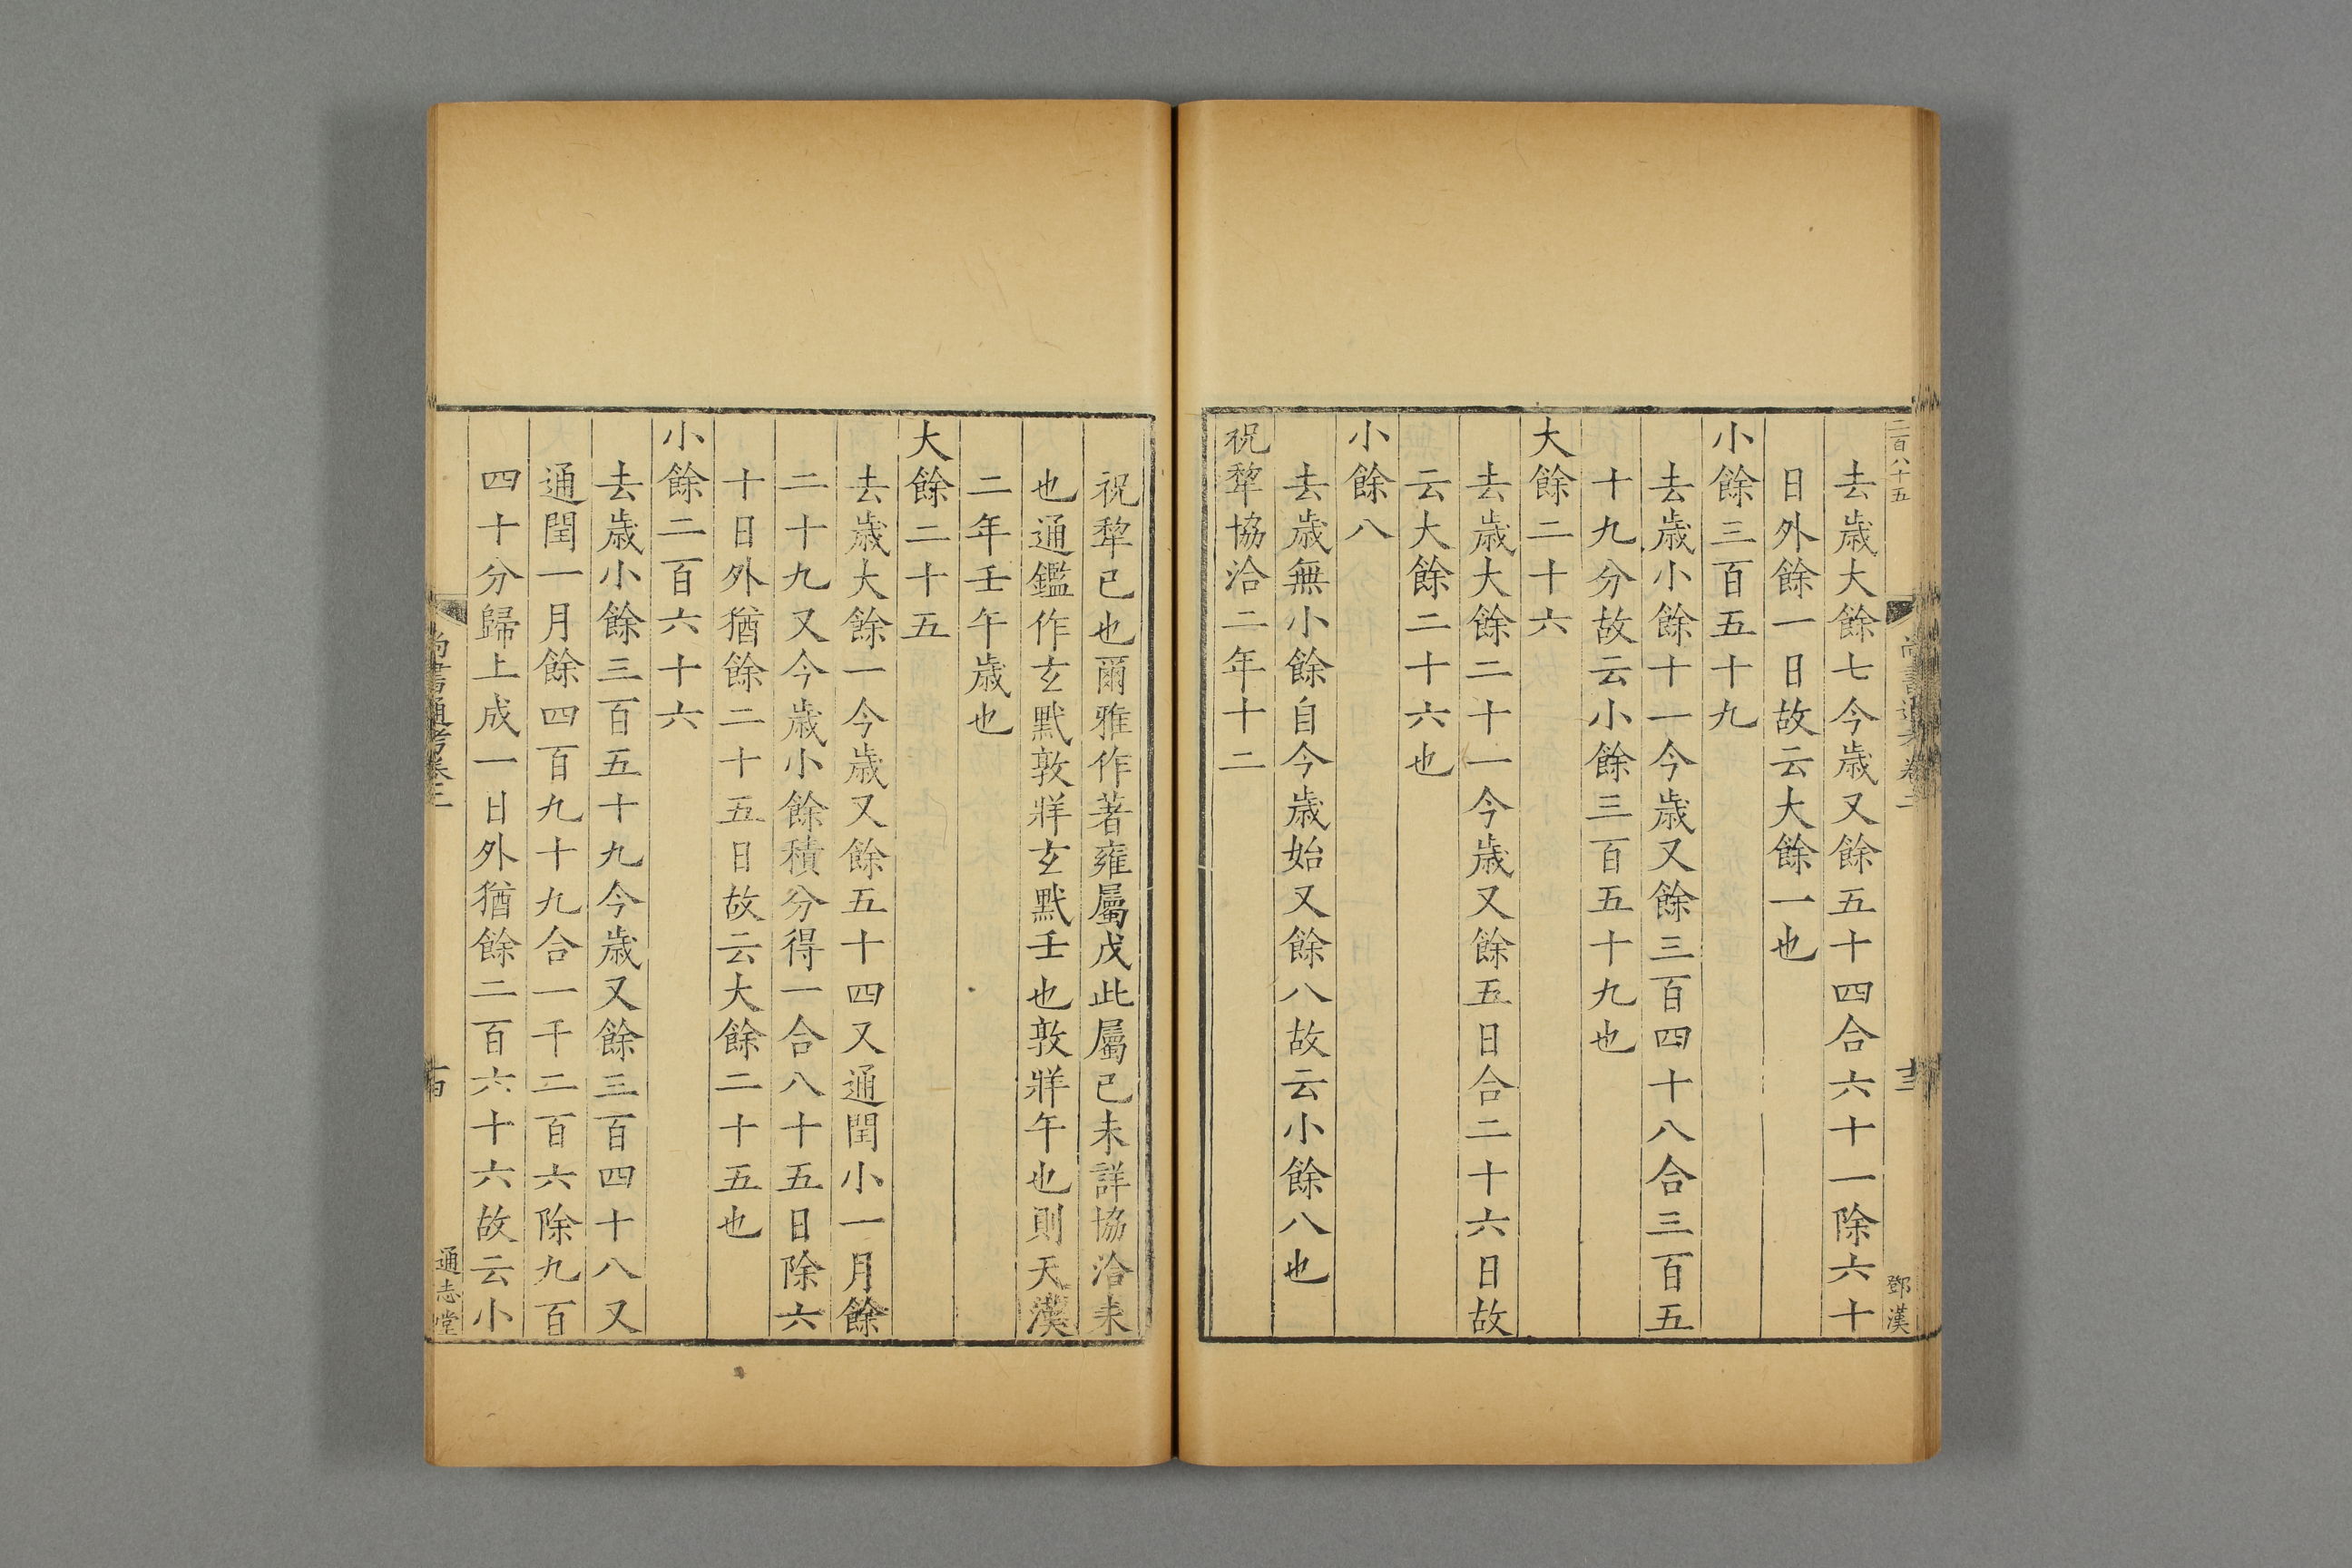 二百八十五
尚書通考卷二
十三
鄧漢
去歲大餘七今歲又餘五十四合六十一除六十
日外餘一日故云大餘一也
小餘三百五十九
去歲小餘十一今歲又餘三百四十八合三百五
十九分故云小餘三百五十九也
大餘二十六
去歲大餘二十一今歲又餘五日合二十六日故
云大餘二十六也
小餘八
去歲無小餘自今歲始又餘八故云小餘八也
祝犂協洽二年十二
祝犂已也爾雅作著雍屬戊此屬已未詳協洽未
也通鑑作玄黓敦牂玄黓壬也敦牂午也則天漢
二年壬午歲也
大餘二十五
去歲大餘一今歲又餘五十四又通閏小一月餘
二十九又今歲小餘積分得一合八十五日除六
十日外猶餘二十五日故云大餘二十五也
小餘二百六十六
去歲小餘三百五十九今歲又餘三百四十八又
通閏一月餘四百九十九合一千二百六除九百
四十分歸上成一日外猶餘二百六十六故云小
尚書通考卷二
十四
通志堂